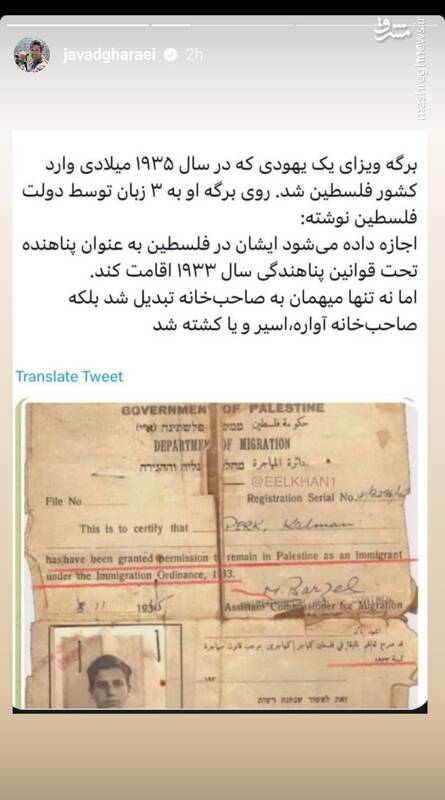 javadgharaei 2h
مشرق
mashreghnews.ir
برگه ویزای یک یهودی که در سال ۱۹۳۵ میلادی وارد
کشور فلسطین شد. روی برگه او به ۳ زبان توسط دولت
فلسطین نوشته:
اجازه داده می‌شود ایشان در فلسطین به عنوان پناهنده
تحت قوانین پناهندگی سال ۱۹۳۳ اقامت کند.
اما نه تنها میهمان به صاحب‌خانه تبدیل شد بلکه
صاحب‌خانه آواره،اسیر و یا کشته شد
Translate Tweet
GOVERNMEN OF PALESTINE
حكومة فلسطين ממש פלשתינה (א״י)
DEPARTMEN OF MIGRATION
دائرة المهاجرة
@EELKHAN1
File No Registration Serial No.
This is to certify that PERK, Kalman
has/have been granted permission t remain in Palestine as an Immigrant
under the Immigration Ordinance, 1 33.
8.11 193
Assistant Commissioner for Migration
قد صرح لهم بالبقاء في فلسطين كمهاجر بموجب قانون المهاجرة
لسنة ١٩٣٣
193
זאת לאשור שנתנה רשות